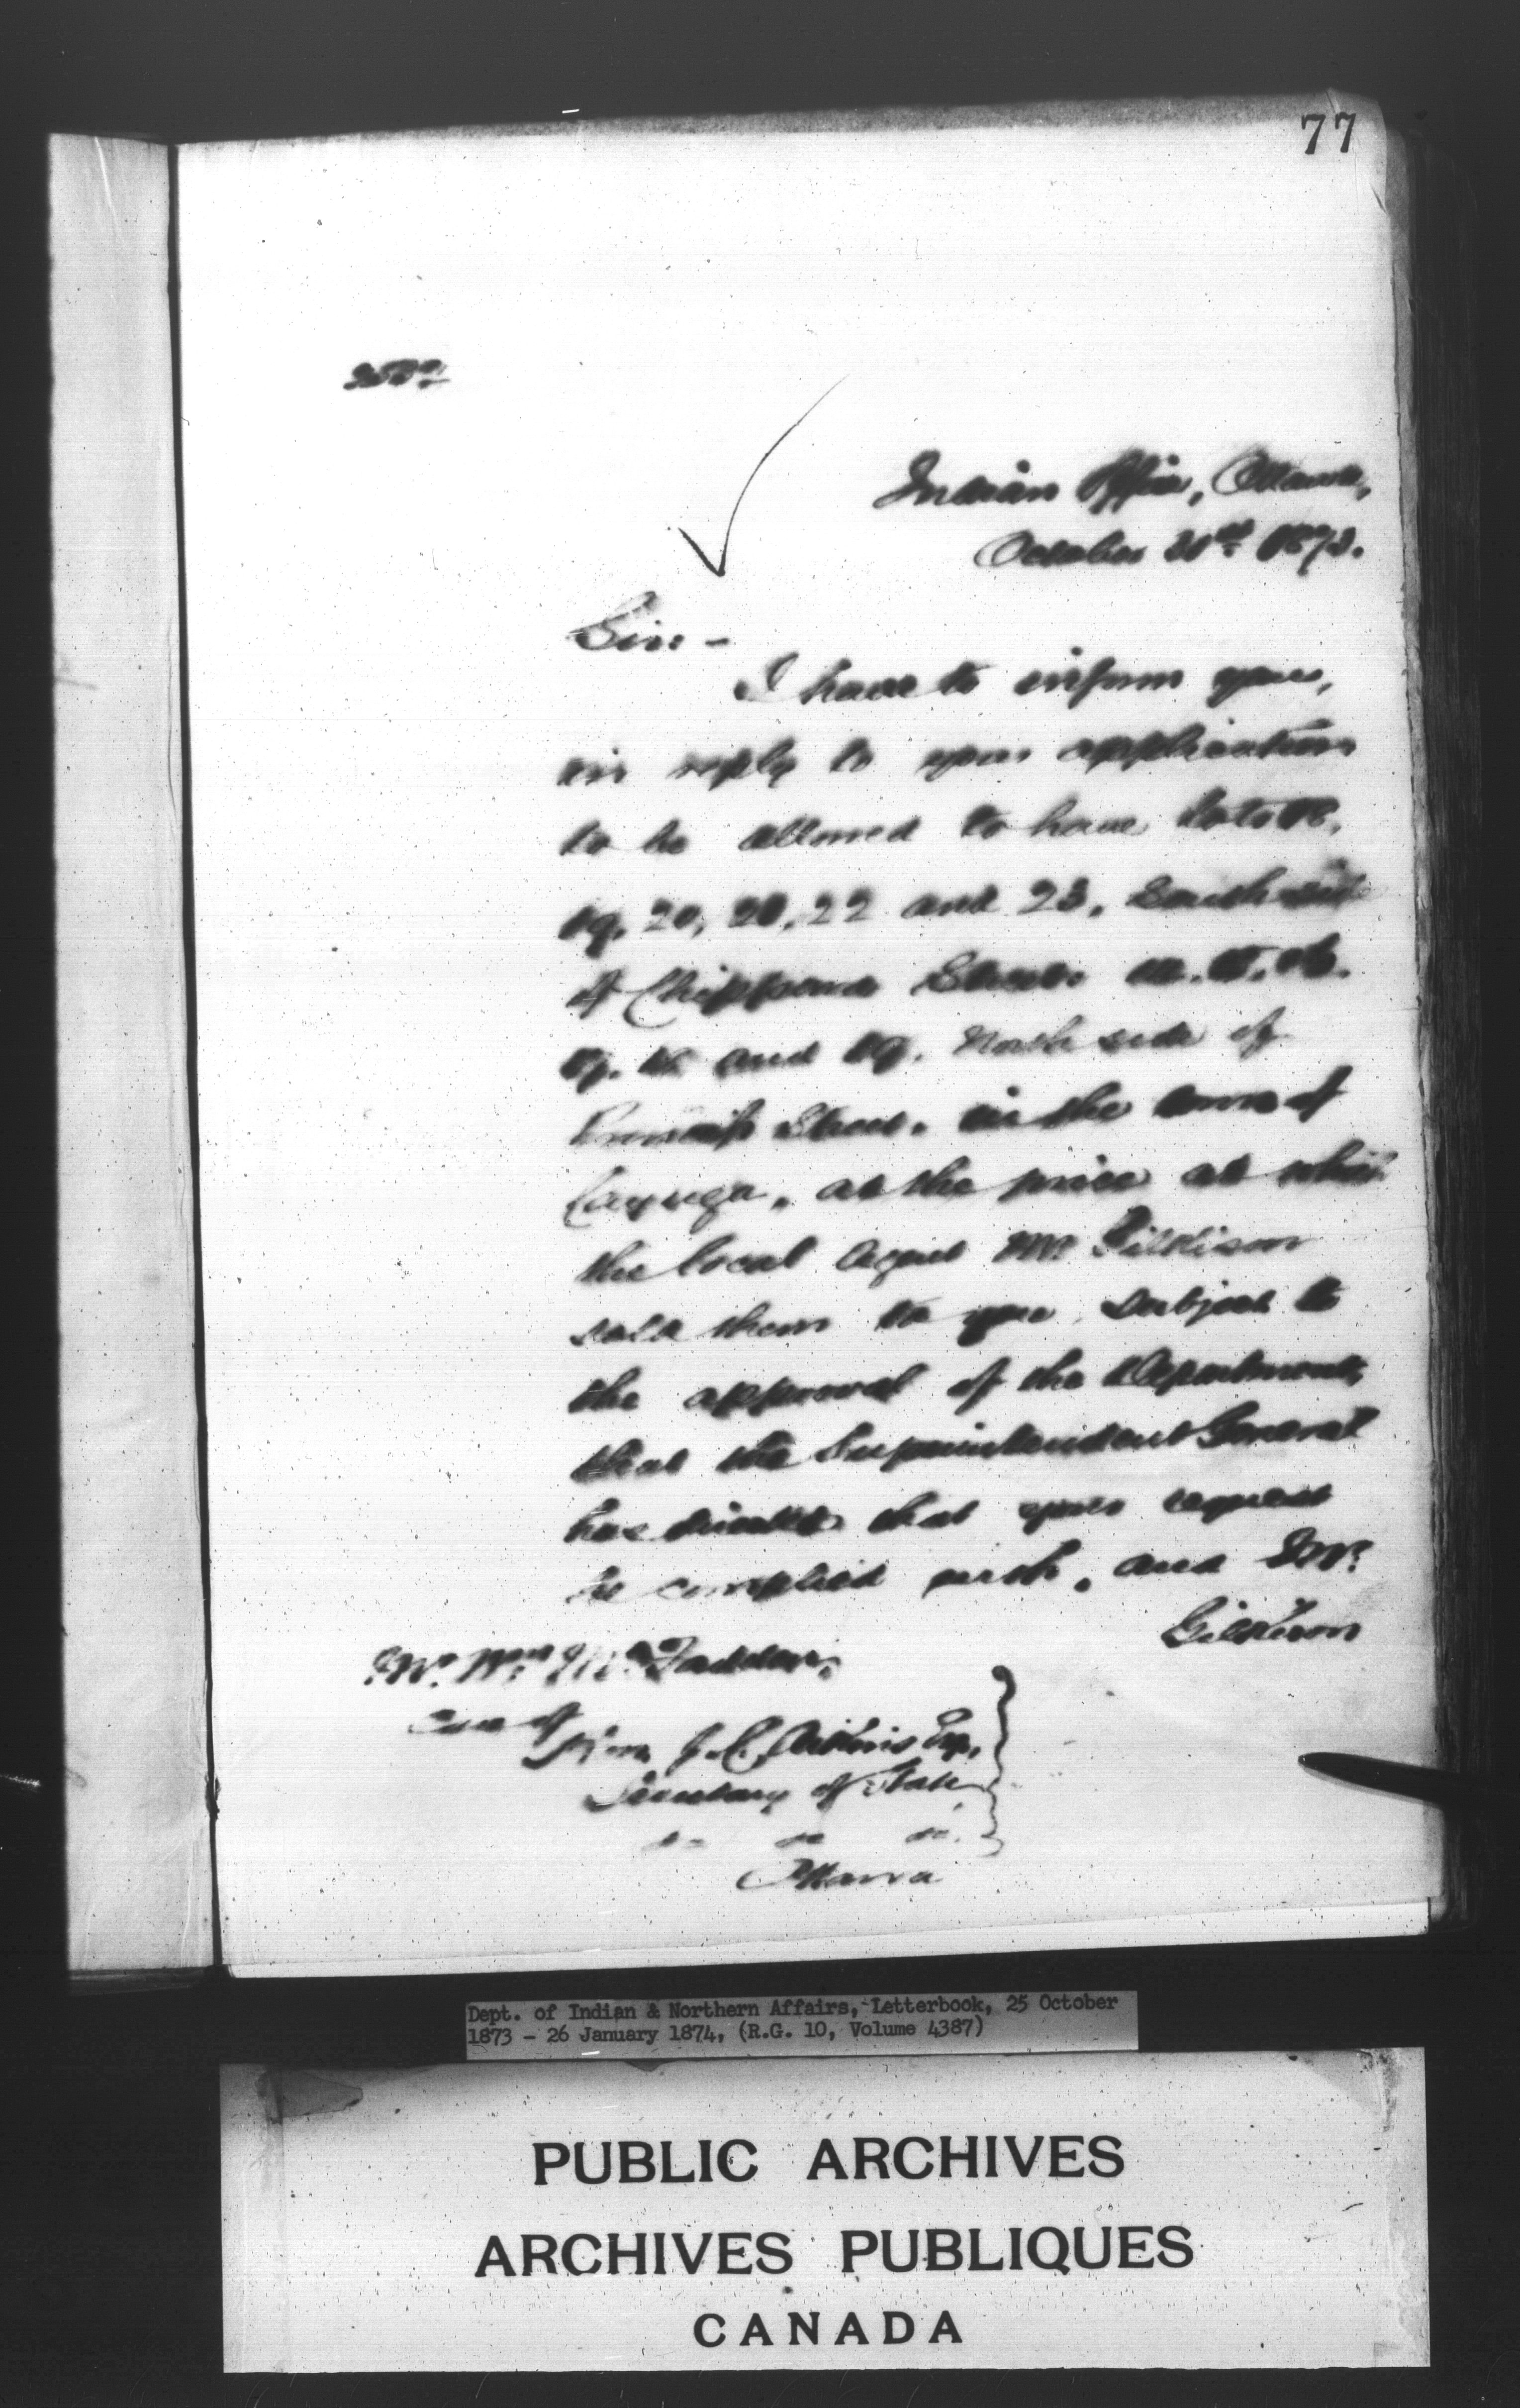 77
Indian Office, Ottawa,
October 31st 1873.
Sir:-
I have to inform you,
in reply to your application
to be allowed to have Lots 18,
19, 20, 21, 22 and 23, South side
of Chippewa Street.
and 19. North side of
Street, in the town of
Cayuga, at the price at which
the local Agent Mr. Gilkison
sold them to you subject to
the approval of the Department,
that the Superintendent General
has directed that your request
be complied with, and Mr.
Gilkison
Mr. Wm. McFadden,
Care of
Hon. J. C. Aikins Esq,
Secretary of State
&c &c &c.
Ottawa
Dept. of Indian & Northern Affairs, Letterbook, 25 October
1873 - 26 January 1874, (R.G. 10, Volume 4387)
PUBLIC ARCHIVES
ARCHIVES PUBLIQUES
CANADA